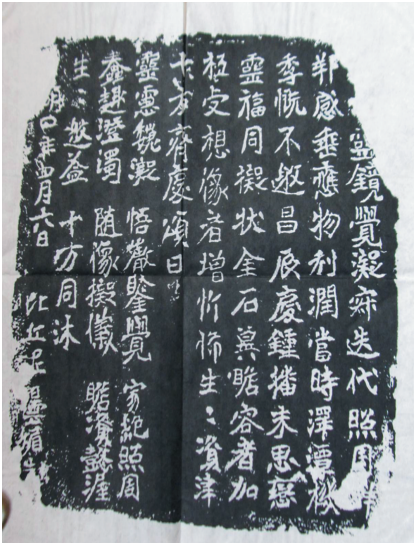 鏡覺凝寂迭代照周
邦感垂應物利潤當時澤潭機
季慨不邀昌辰慶鍾播末思慈
靈福同擬狀金石冀瞻容者加
極虔想像者增忻悕生〻資津
十方齊慶頌曰
靈慮巍凝 悟徹鑒覺 寂絕照周
蠢趣澄濁 隨像擬儀 瞻資懿渥
生〻邀益 十方同沐
年四月六日 比丘尼曇